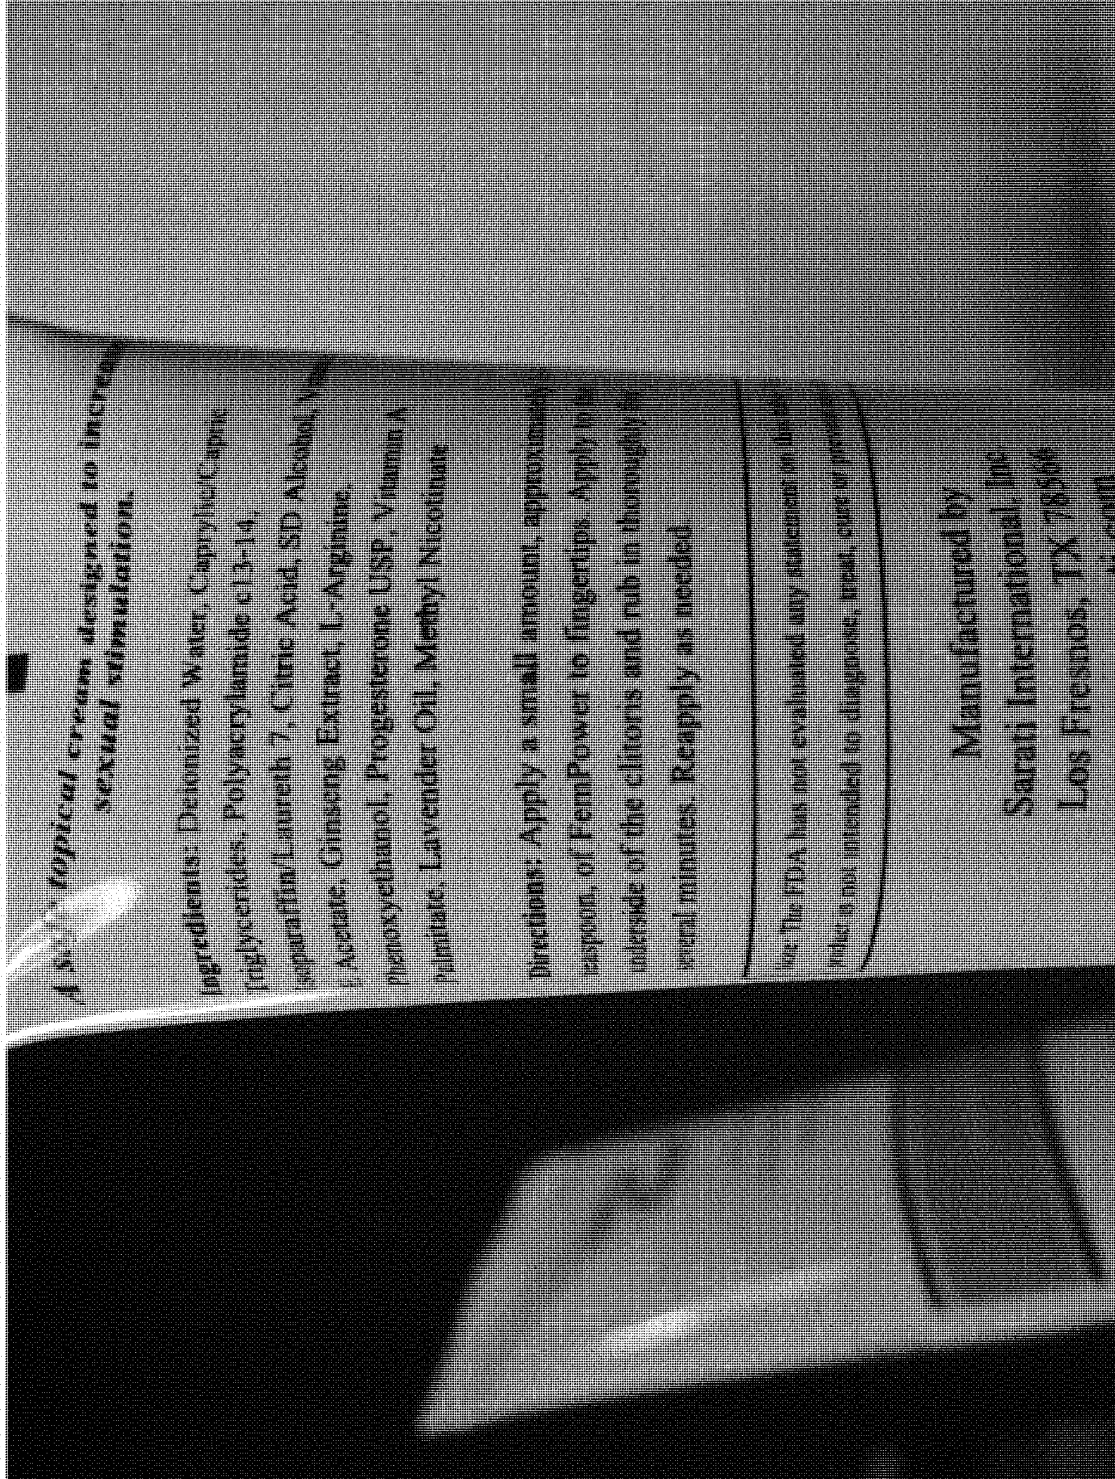 topical cream designed to increa
sexual stimulation.
Ingredients: Deionized Water, Caprylic/Capric
Triglycerides, Polyacrylamide c13-14,
Isoparaffin/Laureth 7, Citric Acid, SD Alcohol,
Acetate, Ginseng Extract, L-Arginine,
Phenoxyethanol, Progesterone USP, Vitamin A
Palmitate, Lavender Oil, Methyl Nicotinate
Directions: Apply a small amount, approximately
easpoon, of FemPower to fingertips. Apply to the
underside of the clitoris and rub in thoroughly for
several minutes. Reapply as needed
The FDA has not evaluated any statement on this
is not intended to diagnose, treat, cure or prevent
Manufactured by
Sarati International, Inc
Los Fresnos, TX 78566